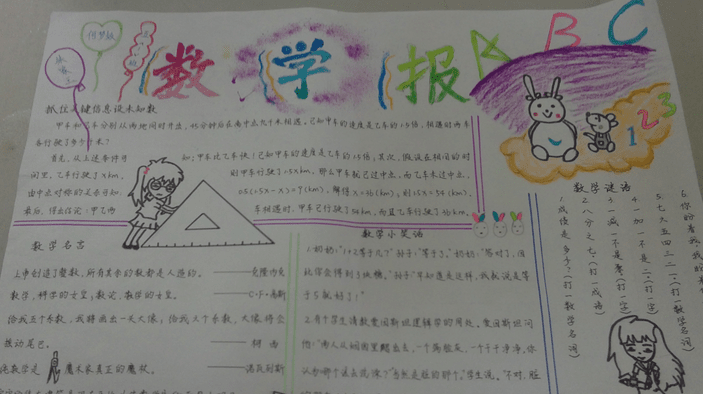 数学报
A B C
1 2 3
抓住关键信息设未知数
甲车和乙车分别从两地同时开出,45分钟后在离中点九千米相遇,已知甲车的速度是乙车的1.5倍,相遇时两车
各行驶了多少千米?
首先,从上述条件可知:甲车比乙车快!已知甲车的速度是乙车的1.5倍;其次,假设在相同的时
间里,乙车行驶了xkm,则甲车行驶了1.5xkm,那么甲车就已过中点,而乙车未过中点,
由中点对称的
0.5(1.5x-x)=9(km),解得x=36(km),则1.5x=54(km),
最后,得出结论:甲乙两车相遇时,甲车已行驶了54km,而且乙车行驶了36km.
数学名言
1.上帝创造了整数,所有其余的数都是人造的。——克隆内克
数学,科学的女皇;数论,数学的女皇。——C·F·高斯
给我五个系数,我将画出一头大象;给我六个系数,大象将会
摇动尾巴。——柯西
纯数学是魔术家真正的魔杖。——诺瓦利斯
数学小笑话
1.奶奶:"1+2等于几?"孙子:"等于3。"奶奶:"答对了,因
此你会得到3块糖。"孙子:"早知道是这样,我就说是等
于5就好了!"
2.有个学生请教爱因斯坦逻辑学的用处。爱因斯坦问
他:"两人从烟囱里爬出去,一个满脸灰,一个干干净净,你
认为哪个该去洗澡?""当然是脏的那个。"学生说。"不对,脏
数学谜语
1.成绩是多少?(打一数学名词)
2.八分之七(打一成语)
3.一减一不是零(打一字)
4.一加一不是二(打一字)
5.七六五四三二一(打一数学名词)
6.你盼着我,我盼着